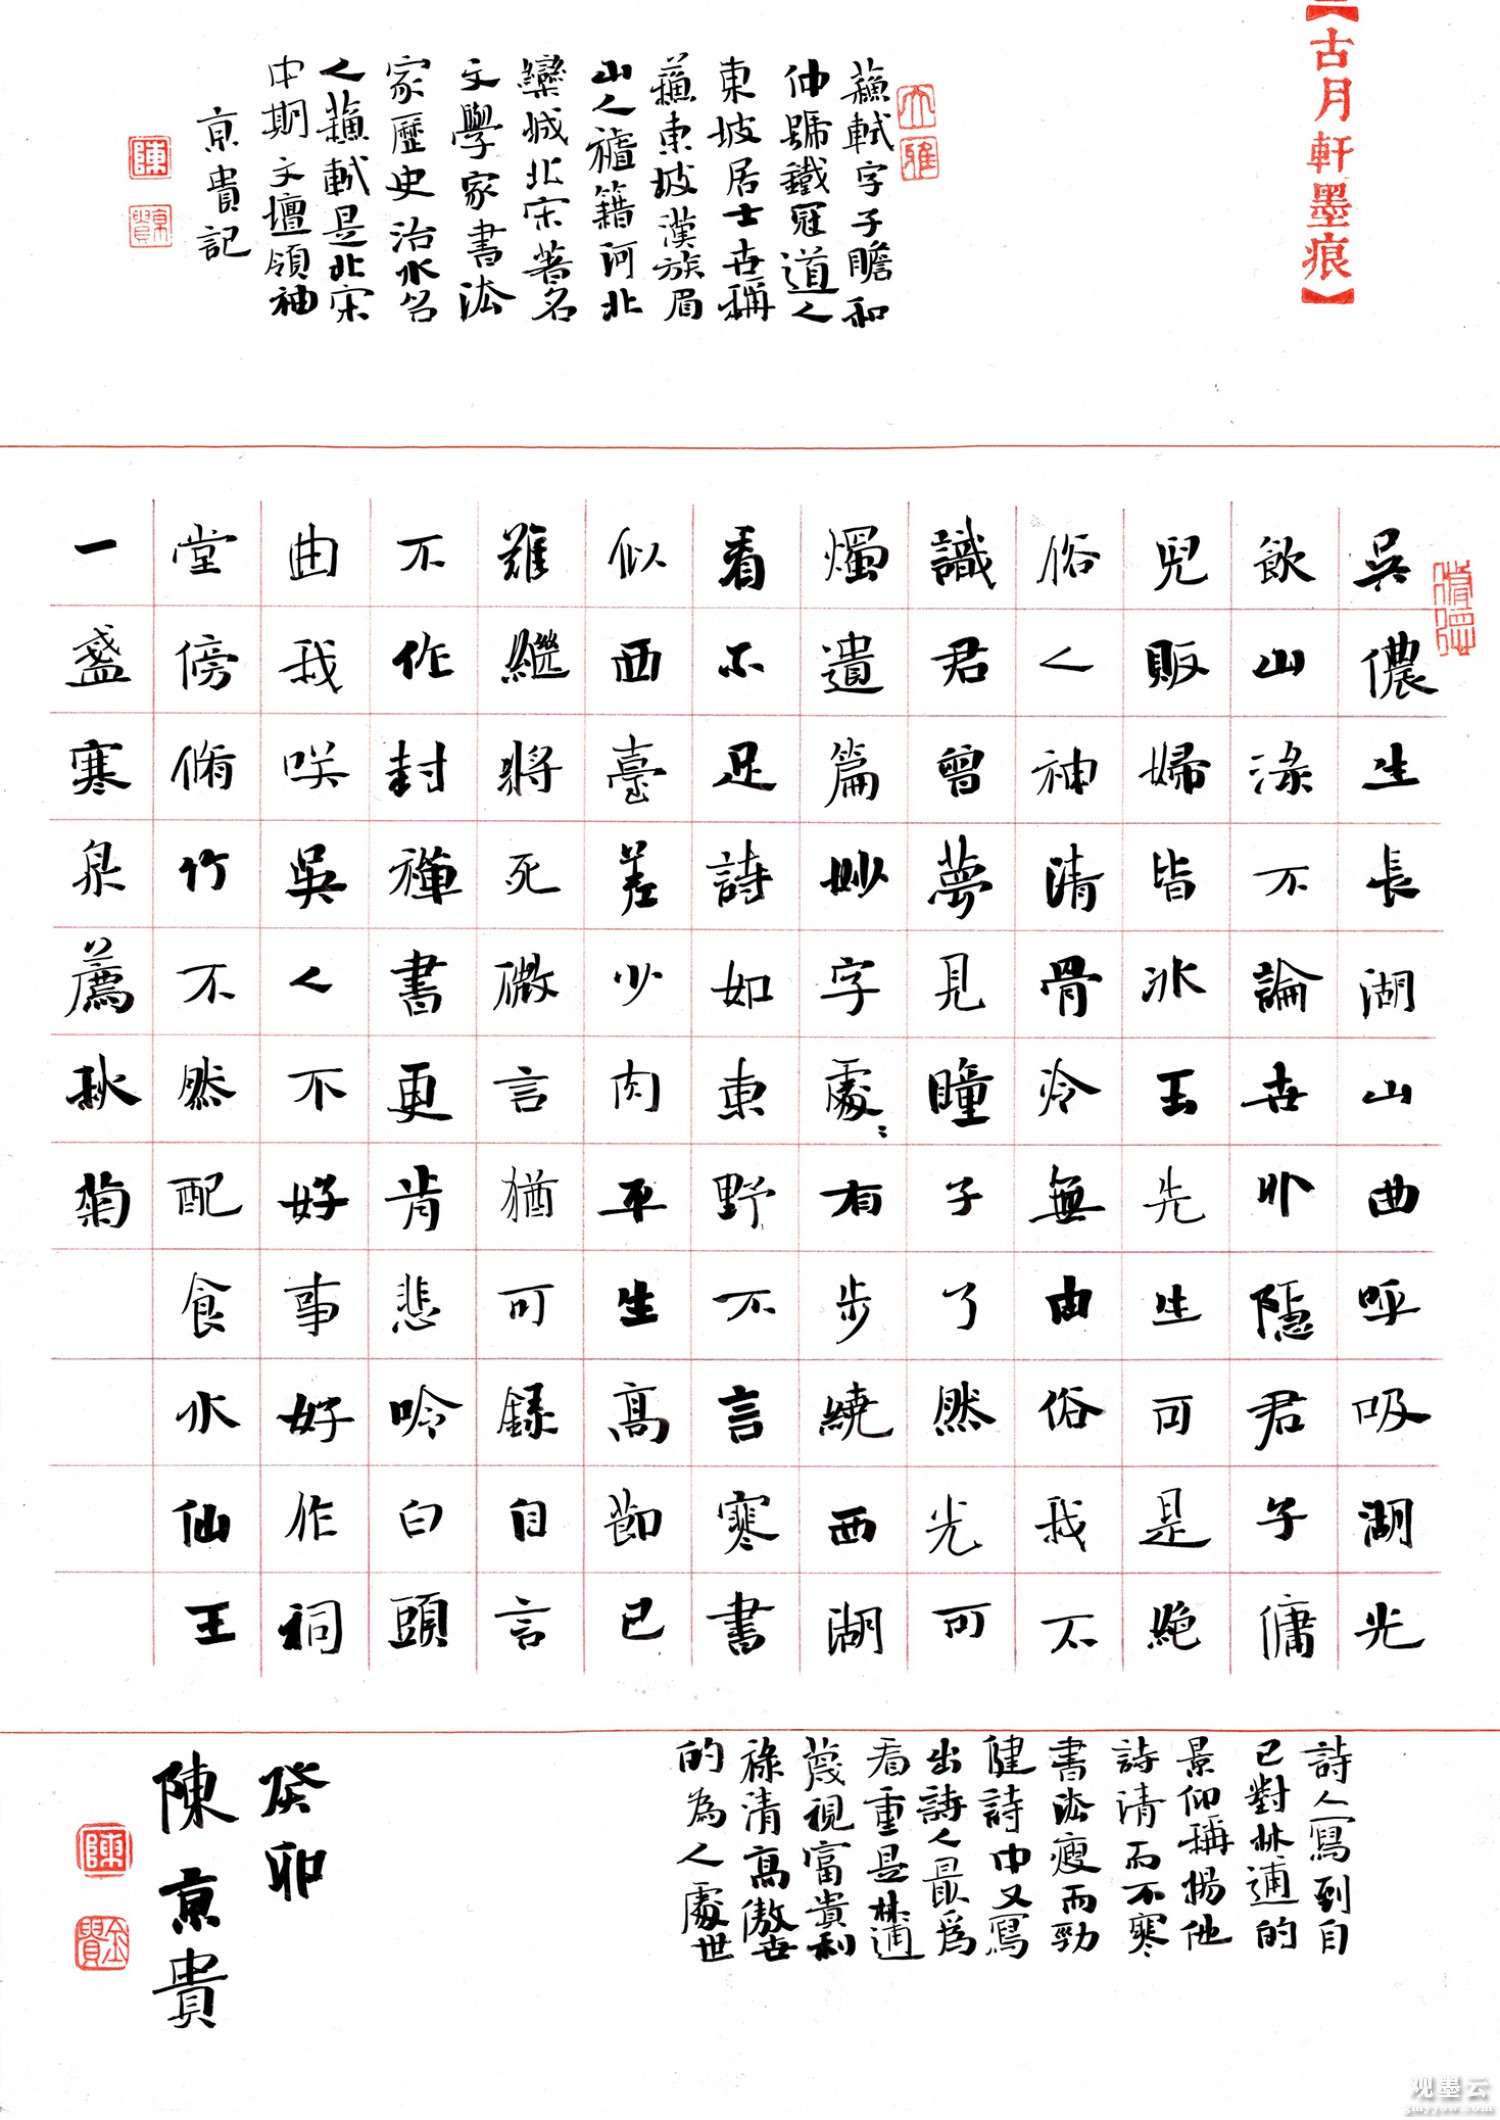 【古月軒墨痕】
大雅
蘇軾字子瞻和
仲號鐵冠道人
東坡居士世稱
蘇東坡漢族眉
山人祖籍河北
欒城北宋著名
文學家書法
家歷史治水名
人蘇軾是北宋
中期文壇領袖
京貴記
陳
京貴
吳儂生長湖山曲呼吸湖光
飲山淥不論世外隱君子傭
兒販婦皆冰玉先生可是絕
俗人神清骨冷無由俗我不
識君曾夢見瞳子了然光可
燭遺篇妙字處〻有步繞西湖
看不足詩如東野不言寒書
似西臺差少肉平生高節已
難繼將死微言猶可錄自言
不作封禪書更肯悲吟白頭
曲我咲吳人不好事好作祠
堂傍脩竹不然配食水仙王
一盞寒泉薦秋菊
詩人寫到自
己對林逋的
景仰稱揚他
詩清而不寒
書法瘦而勁
健詩中又寫
出詩人最為
看重是林逋
蔑視富貴利
祿清高傲世
的為人處世
癸卯
陳京貴
陳
金貴
观墨云
gmyyow.com